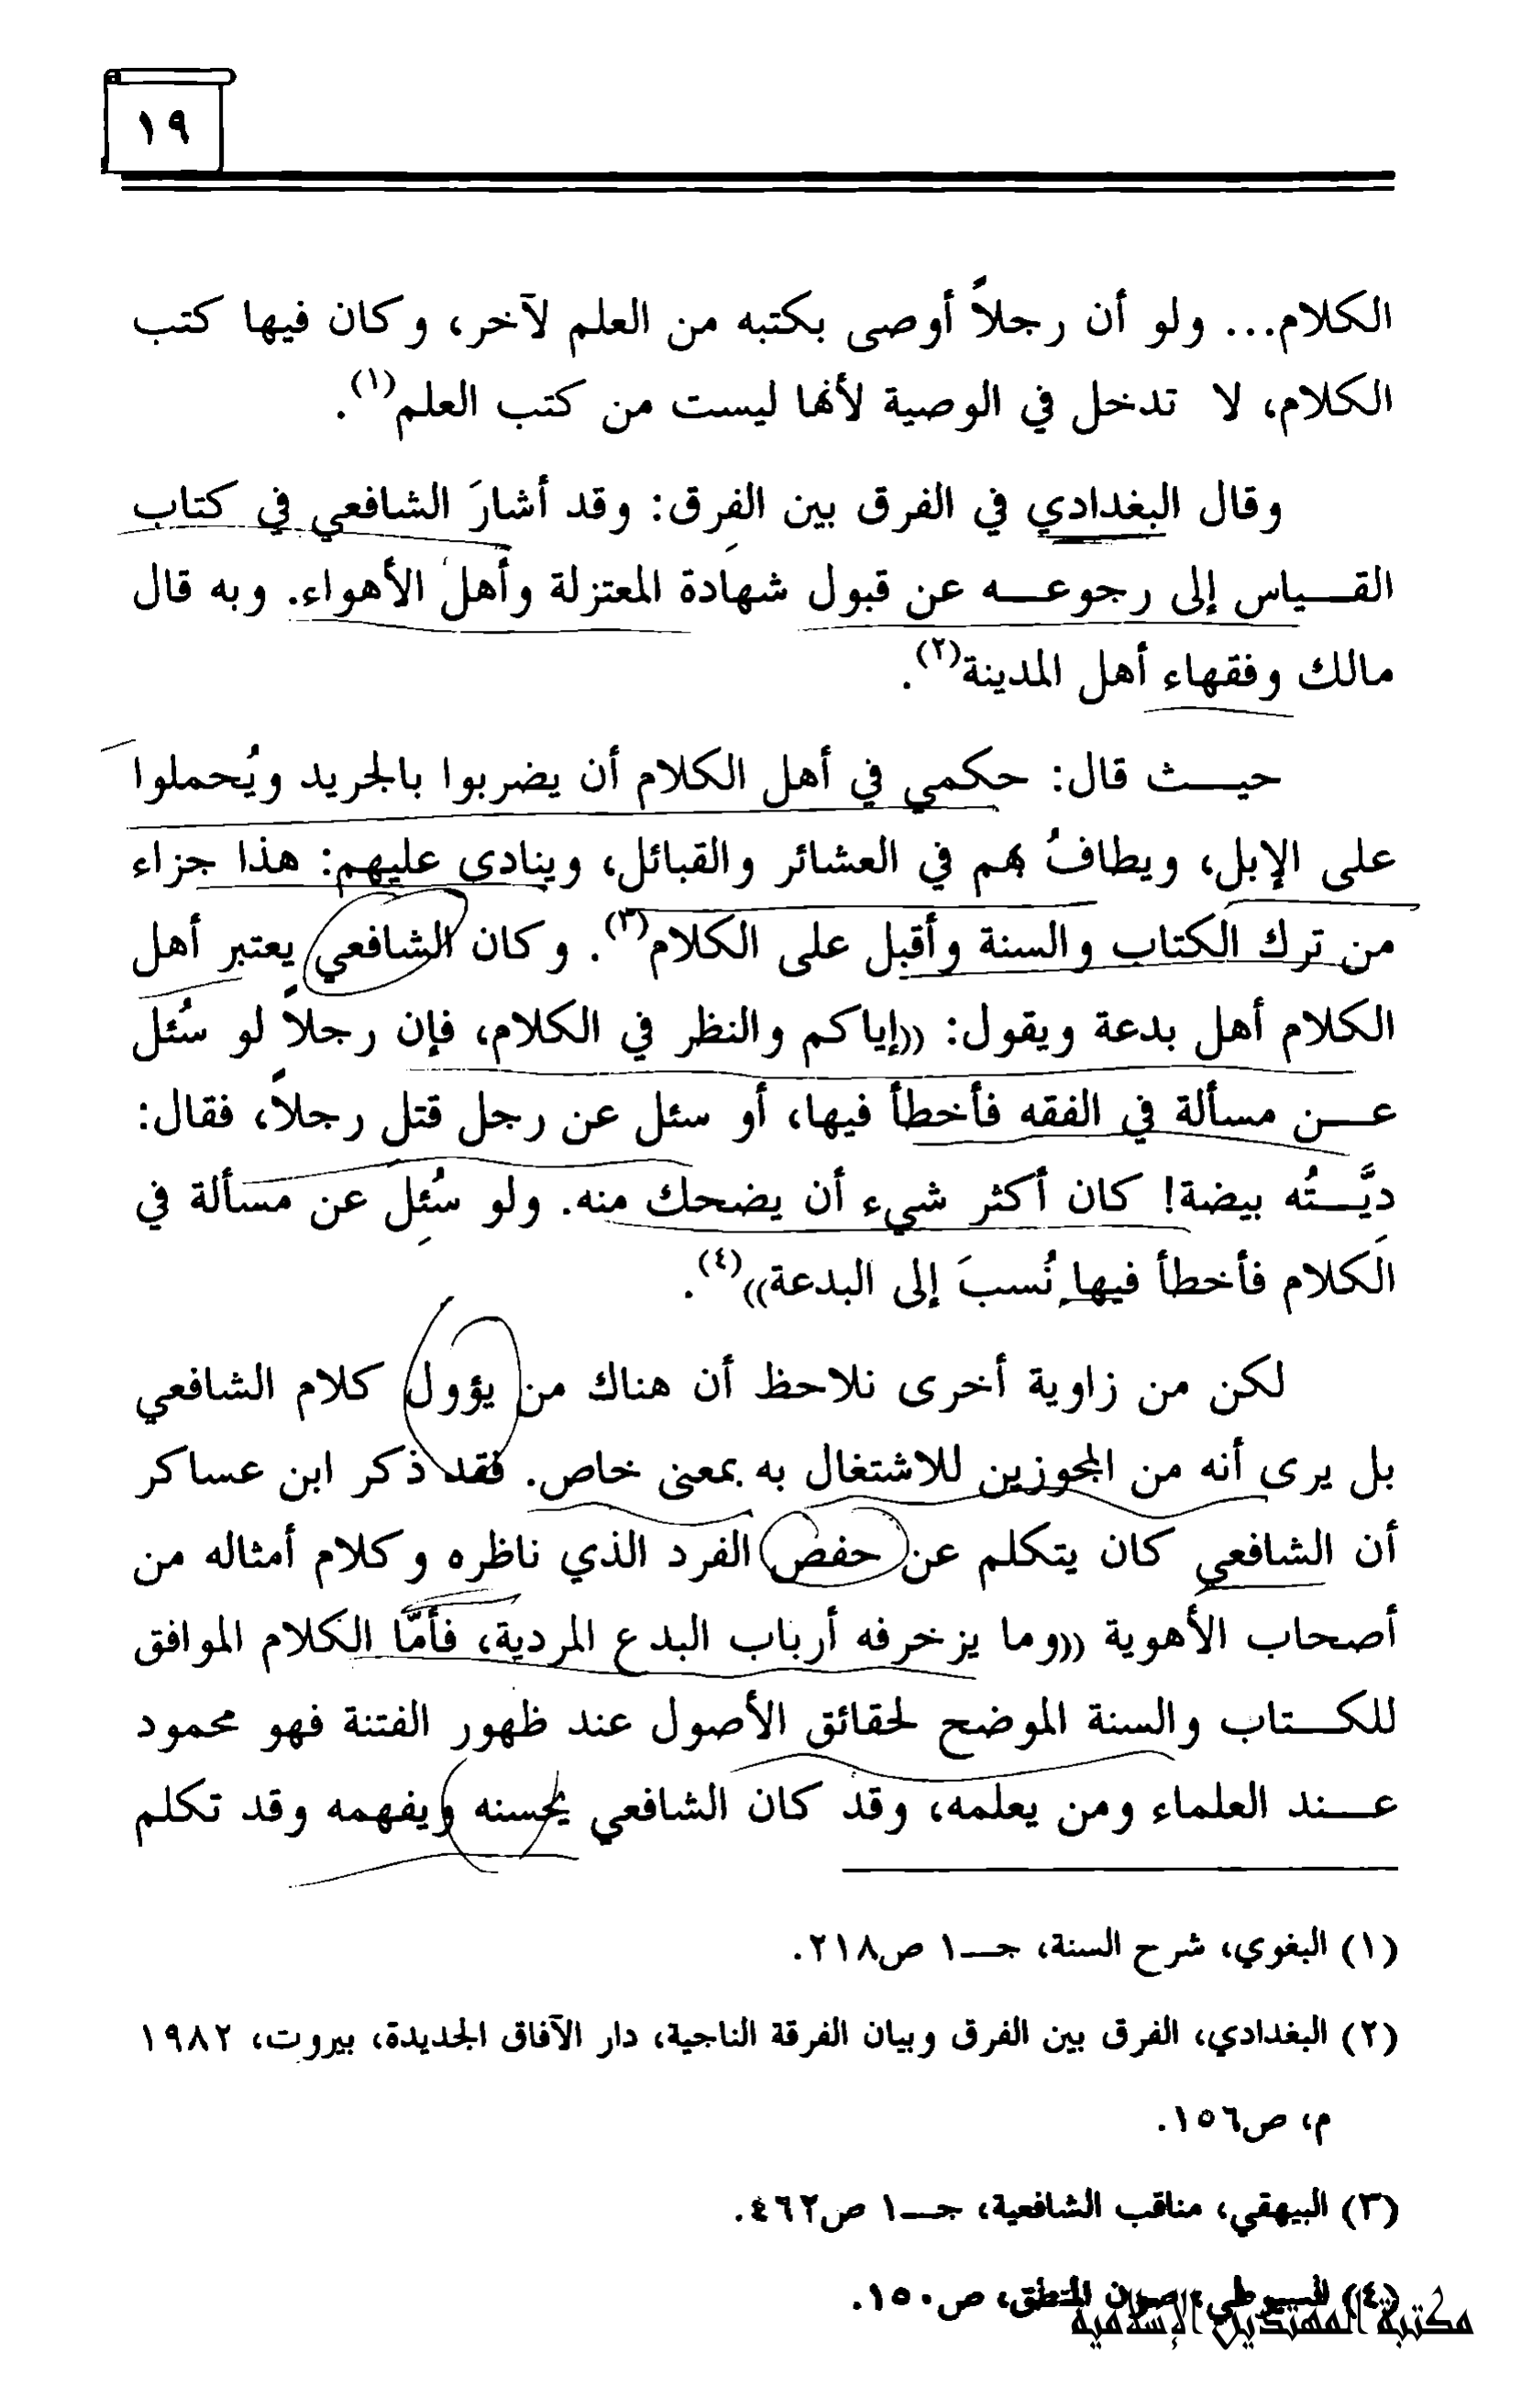 ١٩
الكلام... ولو أن رجلاً أوصى بكتبه من العلم لآخر، وكان فيها كتب
الكلام، لا تدخل في الوصية لأنها ليست من كتب العلم(١).
وقال البغدادي في الفرق بين الفرق: وقد أشارَ الشافعي في كتاب
القـــياس إلى رجوعـــه عن قبول شهادة المعتزلة وأهل الأهواء. وبه قال
مالك وفقهاء أهل المدينة(٢).
حيـــث قال: حكمي في أهل الكلام أن يضربوا بالجريد ويُحملوا
على الإبل، ويطافُ بهم في العشائر والقبائل، وينادى عليهم: هذا جزاء
من ترك الكتاب والسنة وأقبل على الكلام(٣). وكان الشافعي يعتبر أهل
الكلام أهل بدعة ويقول: ((إياكم والنظر في الكلام، فإن رجلاً لو سُئل
عـــن مسألة في الفقه فأخطأ فيها، أو سئل عن رجل قتل رجلاً، فقال:
ديَّـــتُه بيضة! كان أكثر شيء أن يضحك منه. ولو سُئِل عن مسألة في
الكلام فأخطأ فيها نُسبَ إلى البدعة))(٤).
لكن من زاوية أخرى نلاحظ أن هناك من يؤول كلام الشافعي
بل يرى أنه من المجوزين للاشتغال به بمعنى خاص. فقد ذكر ابن عساكر
أن الشافعي كان يتكلم عن حفص الفرد الذي ناظره وكلام أمثاله من
أصحاب الأهوية ((وما يزخرفه أرباب البدع المردية، فأمَّا الكلام الموافق
للكـــتاب والسنة الموضح لحقائق الأصول عند ظهور الفتنة فهو محمود
عـــند العلماء ومن يعلمه، وقد كان الشافعي يحسنه ويفهمه وقد تكلم
(١) البغوي، شرح السنة، جـــ١ ص٢١٨.
(٢) البغدادي، الفرق بين الفرق وبيان الفرقة الناجية، دار الآفاق الجديدة، بيروت، ١٩٨٢
م، ص١٥٦.
(٣) البيهقي، مناقب الشافعية، جـــ١ ص٤٦٢.
(٤) السيوطي، صون المنطق، ص١٥٠.
مكتبة المهتدين الإسلامية